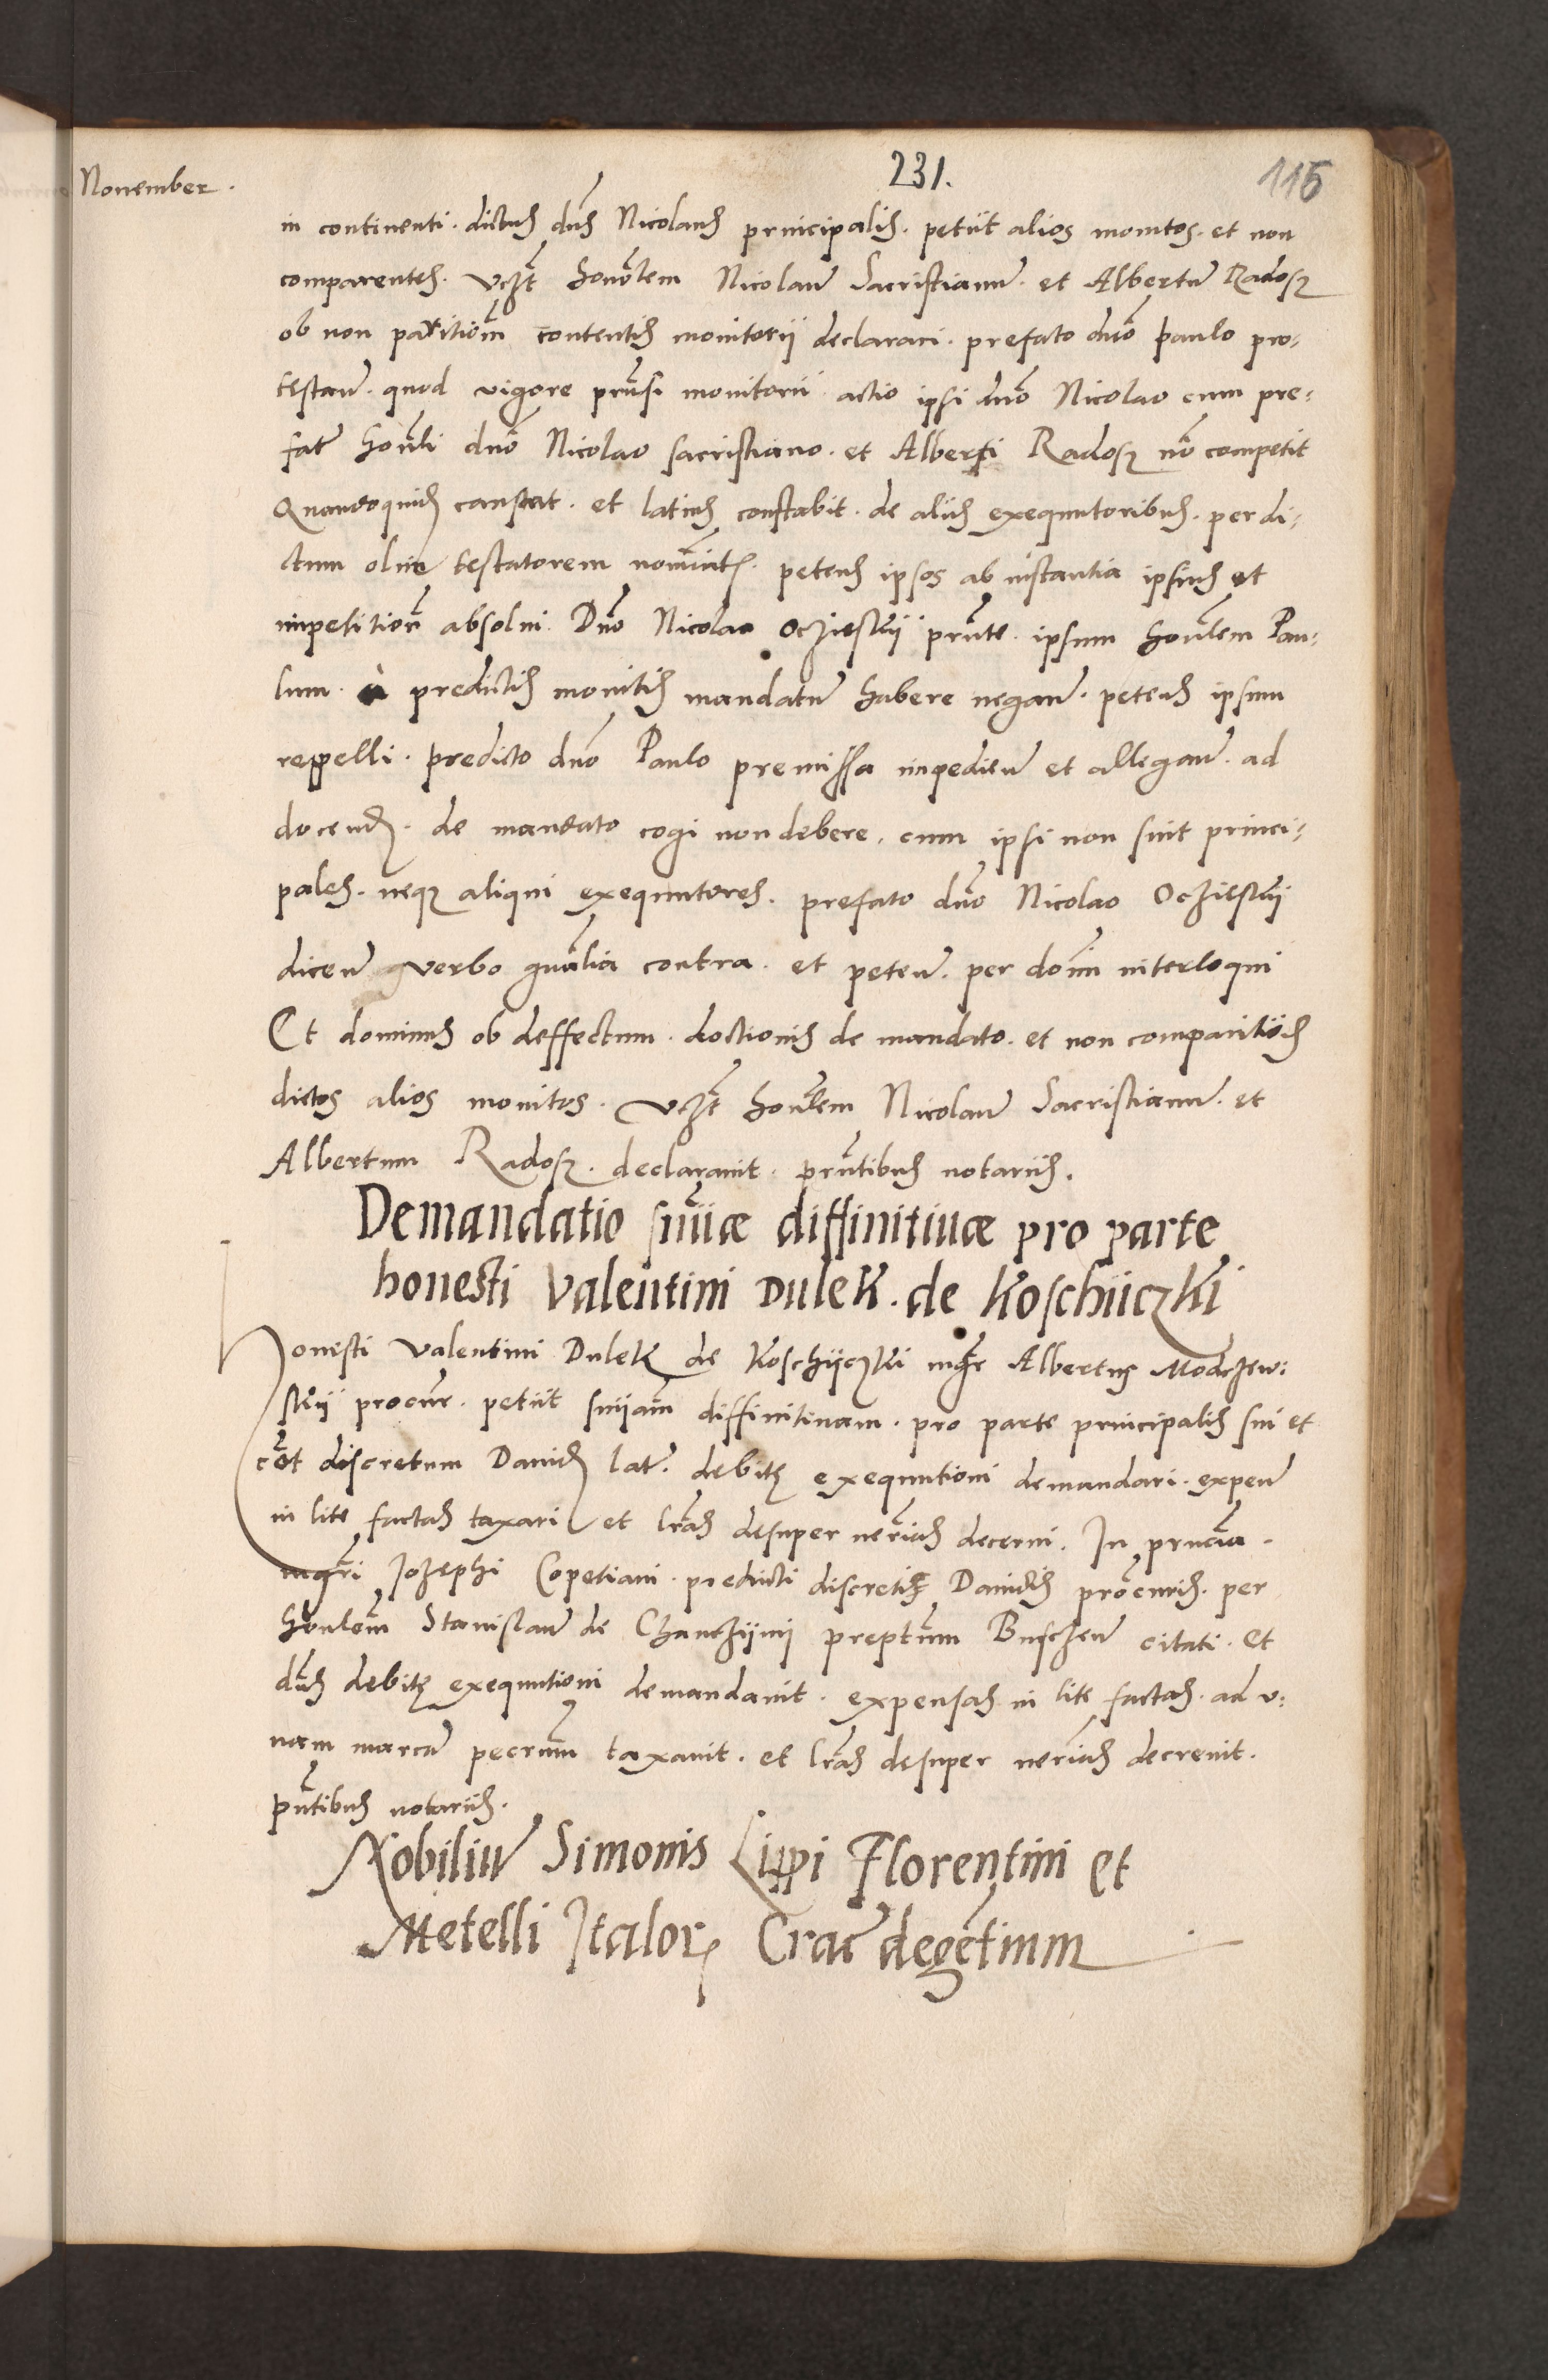 November.
231.
115
in continenti. dictus dns Nicolaus principalis. petiit alios monitos. et non
comparentes. vczt honblem Nicolau Sacristianu. et Albertu Radosz
ob non paritiom contentis monitorii declarari. prefato dno paulo pro-
testan. quod vigore prnsi monitorii actio ipsi dno Nicolao cum pre-
fat honbli dno Nicolao sacristiano. et Alberti Radosz no competit
Quandoquid constat. et latius constabit. de aliis exequutoribus. per di-
ctum olim testatorem nominat. petens ipsos ab instantia ipsius et
impetition absolui. Dno Nicolao Oczieskij prnte. ipsum honblem Pau-
lum. à predictis monitis mandatu habere negan. petens ipsum
reppelli. predicto dno Paulo premissa impedien et allegan. ad
docend. de mandato cogi non debere, cum ipsi non sint princi-
pales. neqz aliqui exequutores. prefato dno Nicolao Oczieskij
dicen verbo gnalia contra. et peten. per dom interloqui
Et dominus ob deffectum. doctionis de mandato. et non comparitiois
dictos alios monitos. vczt honblem Nicolau Sacristianu. et
Albertum Radosz. declarauit. prntibus notariis.
Demandatio sniiæ diffinitiuæ pro parte
honesti Valentini Dulek. de Koschiiczki
Honesti Valentini Dulek de Koschijczki mgr Albertus Modrzew-
skij procur. petiit sniiam diffinitiuam. pro parte principalis sui et
cont discretum Dauid lat. debitę exequutioni demandari. expen
in lite factas taxari et lras desuper nerias decerni. In prncia.
mgri Jozephi Copetiani. predicti discreti Dauidis procuris. per
honlem Stanislau de Chanczijni preptum Busczen citati. et
dns debitę exequutioni demandauit. expensas in lite factas. ad v-
nam marca pecrum taxauit. et lras desuper nerias decreuit.
pntibus notariis.
Nobiliu Simonis Lippi Florentini et
Metelli Italor Crac degetium